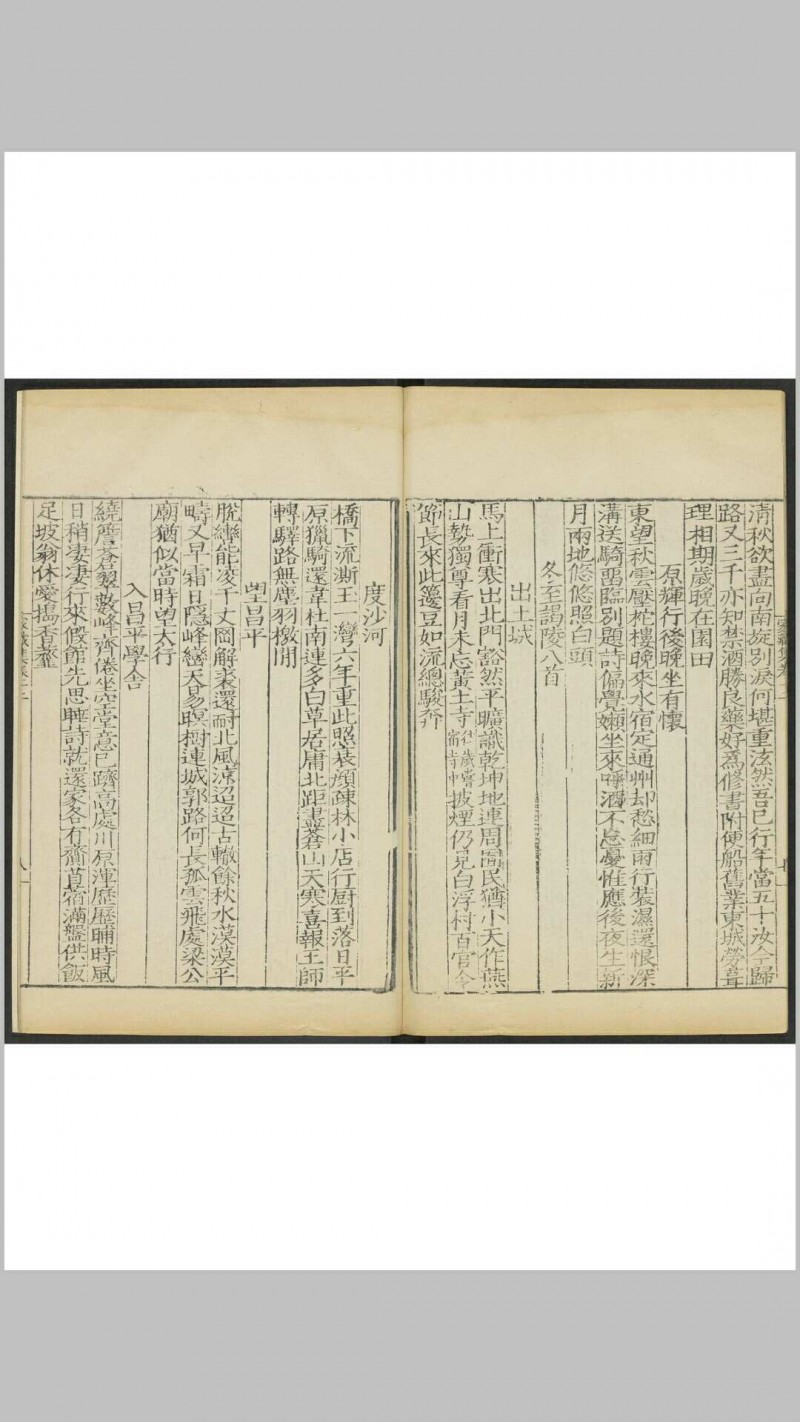 清秋欲盡向南旋別淚何堪重泫然吾已行年當五十汝今歸
路又三千亦知禁酒勝良藥好爲修書附便船舊業東城勞葺
理相期歲晚在園田
原輝行後晚坐有懷
東望秋雲壓柁樓晚來水宿定通州却愁細雨行裝濕還恨深
溝送騎畱臨別題詩偏覺嬾坐來呼酒不忘憂惟應後夜生新
月兩地悠悠照白頭
冬至謁陵八首
出土城
馬上衝寒出北門豁然平曠識乾坤地連周園民猶小天作燕
山勢獨尊看月未忘黃土寺往歲嘗宿寺中披煙仍見白浮村百官令
節長來此籩豆如流總駿奔
度沙河
橋下流澌玉一灣六年重此照衰顔疎林小店行厨到落日平
原獵騎還韋杜南連多白草居庸北距盡蒼山天寒喜報王師
轉驛路無塵羽檄閒
望昌平
脫轡能凌千丈岡解裘還耐北風涼迢迢古轍餘秋水漠漠平
疇又早霜日隱峰巒天易暝樹連城郭路何長孤雲飛處梁公
廟猶似當時望太行
入昌平學舍
繞簷蒼翠數峰齊倦坐空堂意已躋高處川原渾歷歷晡時風
日稍凄凄行來假館先思睡詩就還家各有齎苜蓿滿盤供飯
足坡翁休愛搗香虀